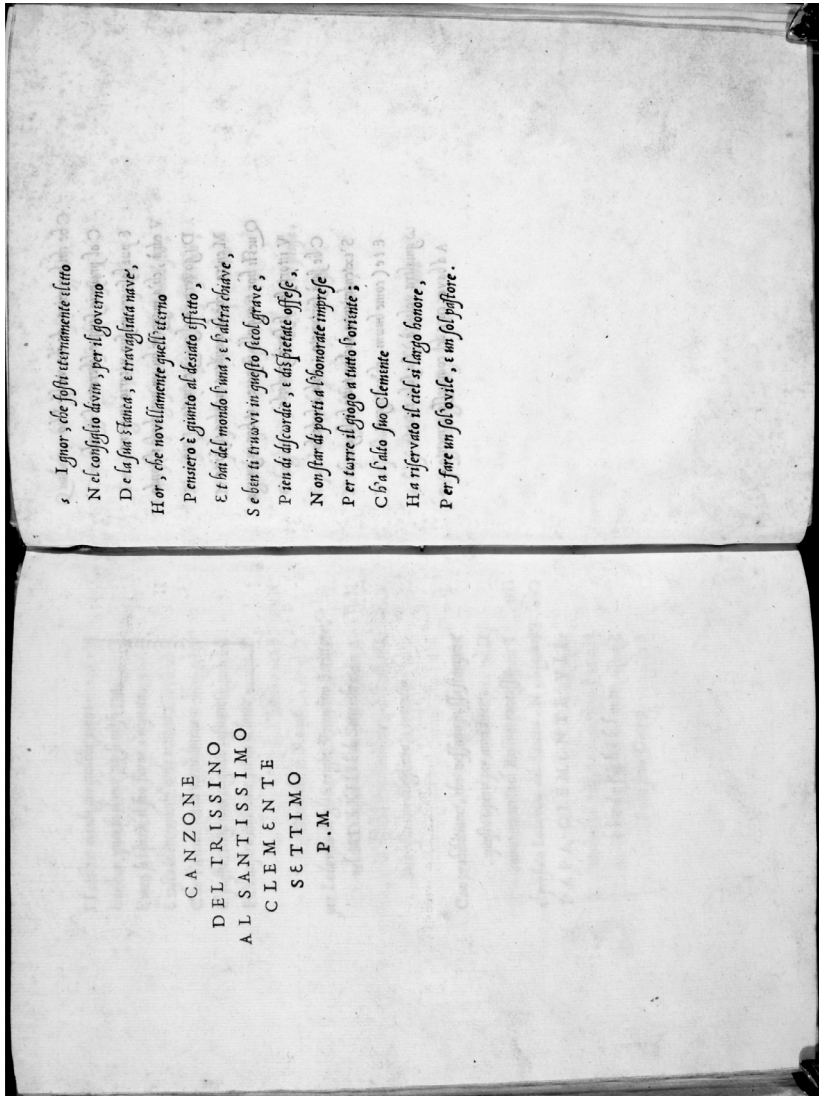 CANZONE
DEL TRISSINO
AL SANTISSIMO
CLEMƐNTE
SƐTTIMO
P. M
s Ignor, che foſti εternamente εlεtto
Nel conſiglio divin, per il govεrno
De la ſua ſtanca, ε travagliata nave,
Hor, che novεllamente quell'εtεrno
Penſiεro è giunto al deſiato εffεtto,
Ɛt hai del mondo l'una, ε l'altra chiave,
Se bεn ti truωvi in queſto ſεcol grave,
Piεn di diſcωrdie, ε diſpietate offeſe,
Non ſtar di porti a l'honorate impreſe
Per tωrre il giogo a tutto l'oriεnte;
Ch'a l'alto ſuo Clemεnte
Ha riſervato il ciεl si largo honore,
Per fare un ſol'ovile, ε un ſol paſtore.